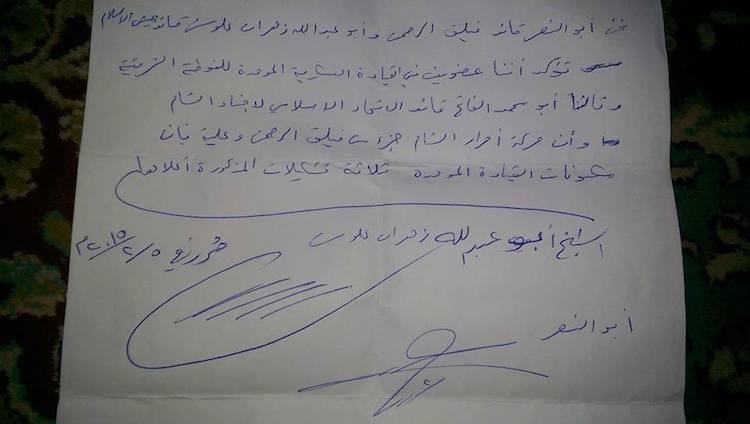 نحن أبو النصر قائد فيلق الرحمن وأبو عبدالله زهران علوش قائد جيش الإسلام
نؤكد أننا عضوين في القيادة العسكرية الموحدة للغوطة الشرقية
وثالثنا أبو محمد الفاتح قائد الاتحاد الاسلامي لأجناد الشام
وأن حركة أحرار الشام جزء من فيلق الرحمن وعليه فإن
مكونات القيادة الموحدة ثلاثة تشكيلات المذكورة أعلاه
الشيخ أبو عبدالله زهران علوش
حُرر في ٢٠١٥/٢/٥ م
أبو النصر